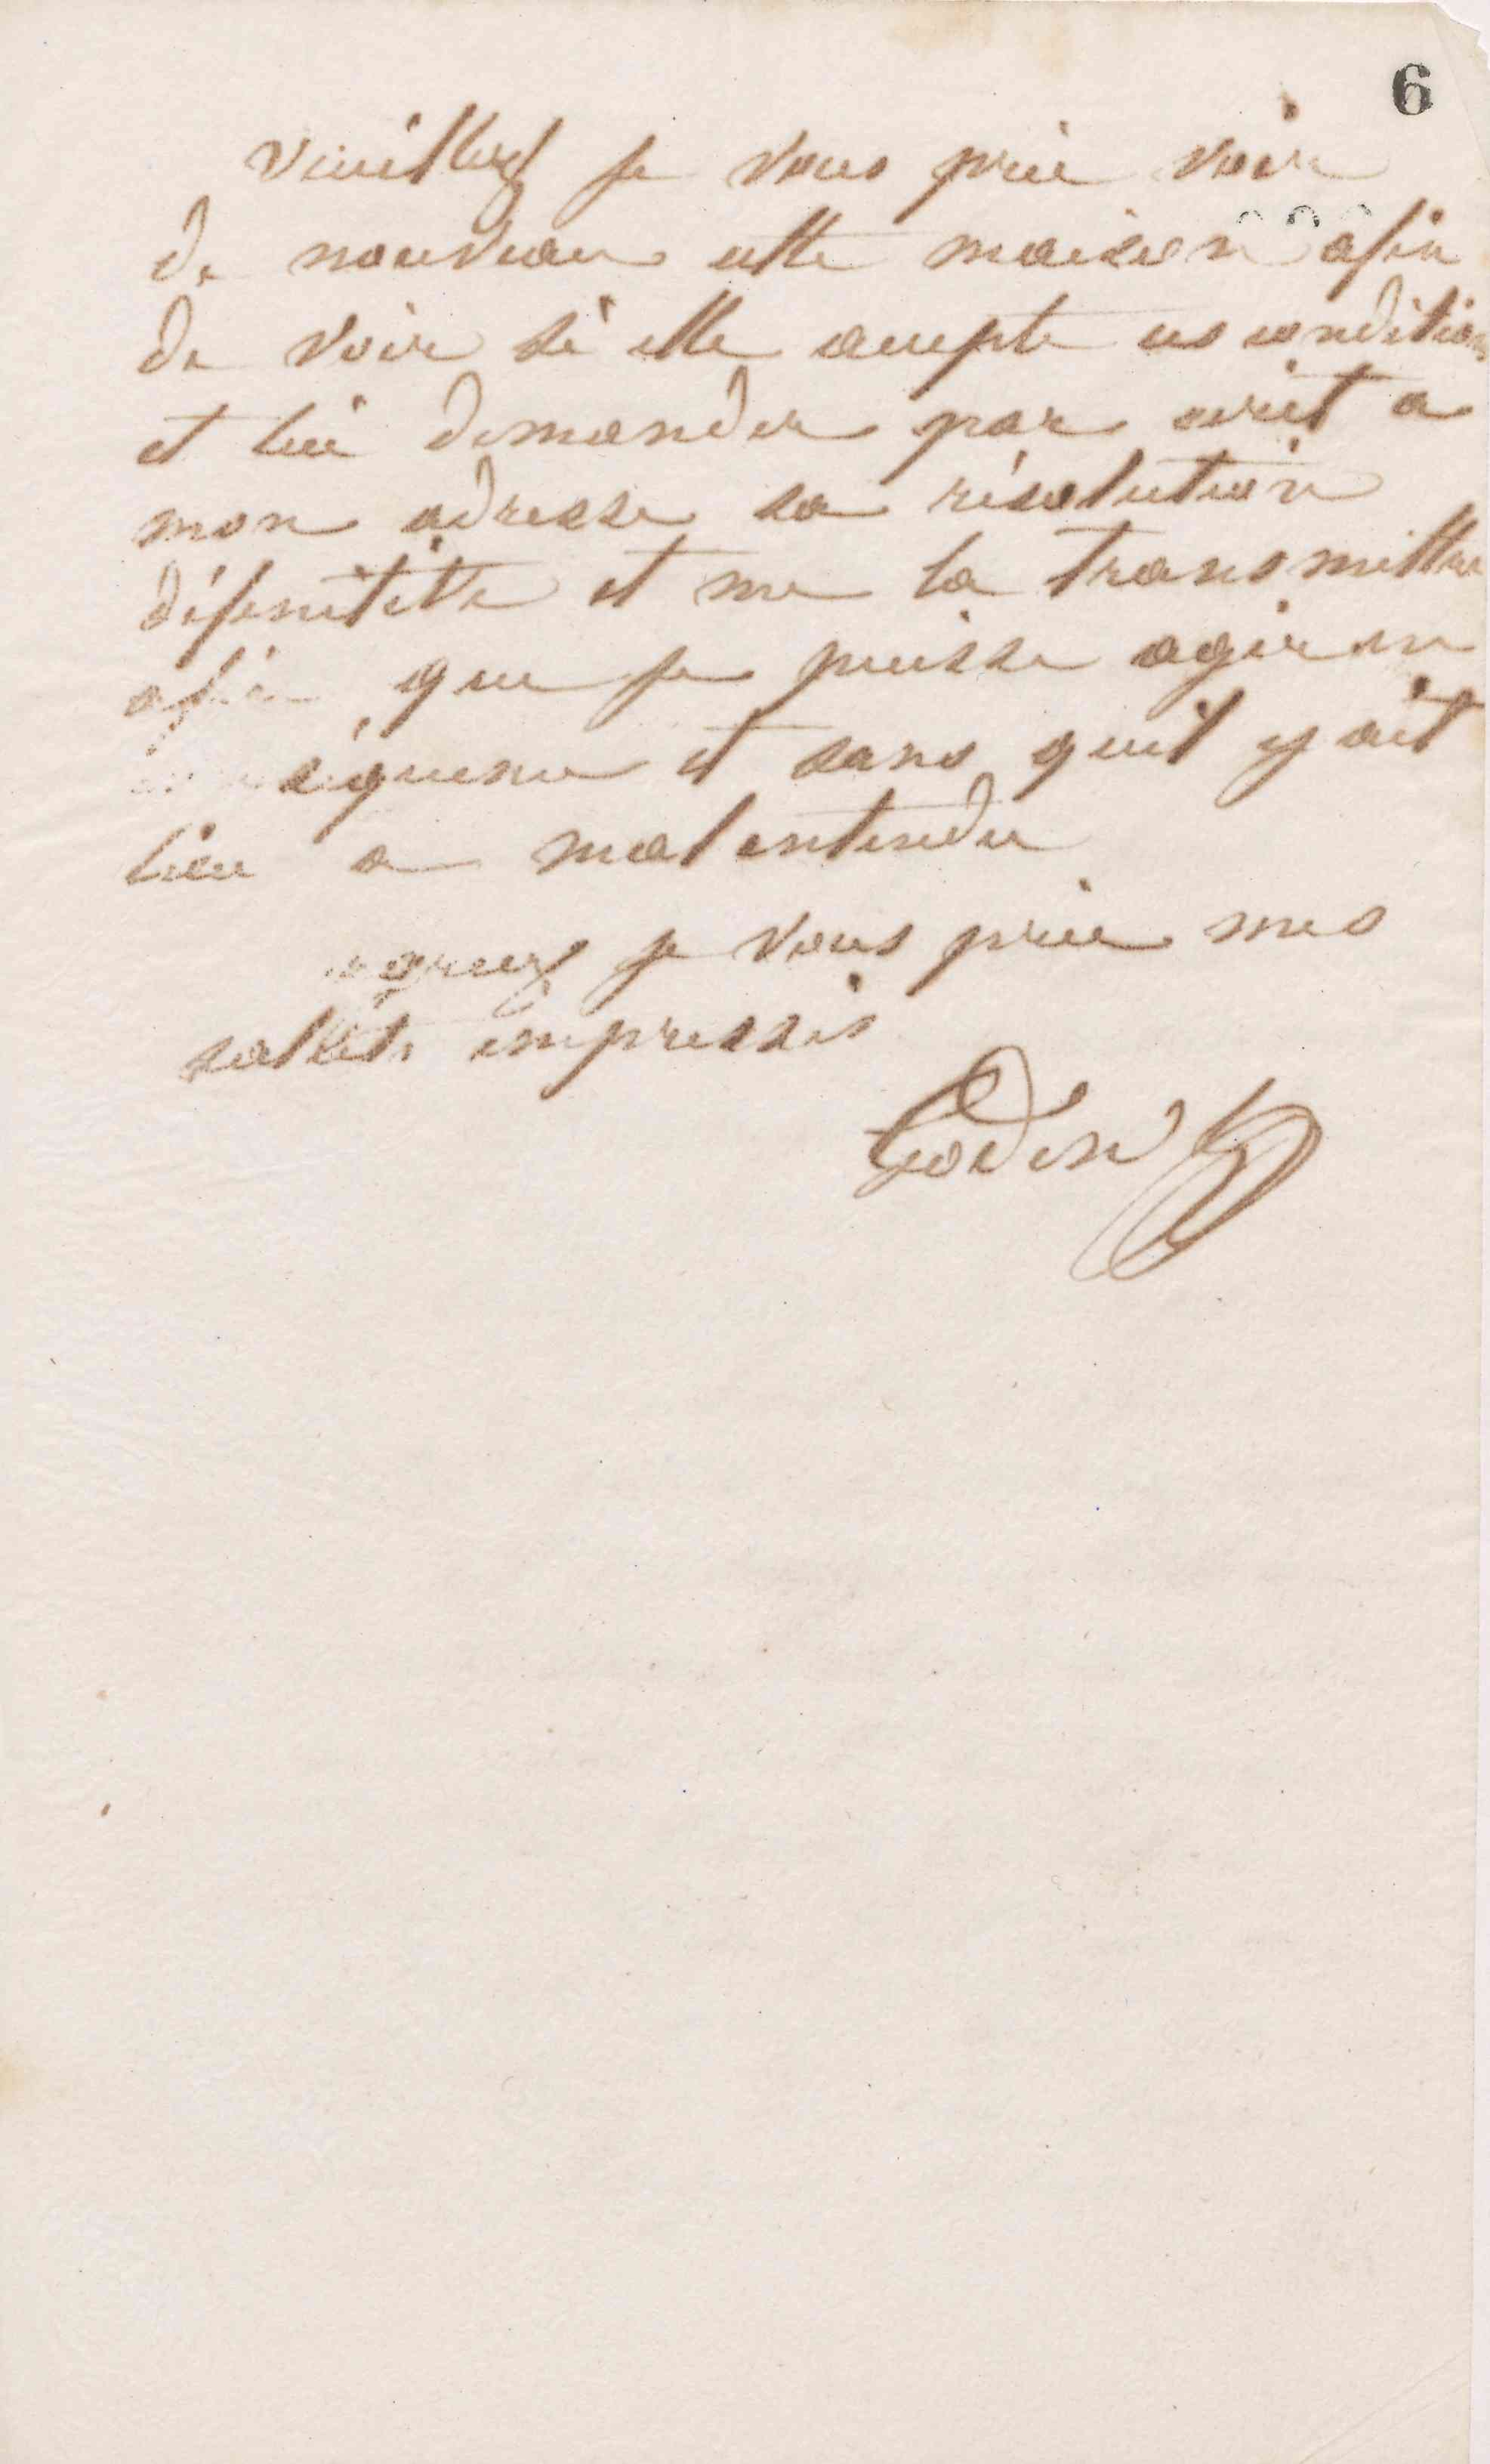 6
veuillez je vous prie voir
de nouveau cette maison afin
de voir si elle accepte ces conditions
et lui demander par ecrit a
mon adresse sa résolution
définitive et me la transmettre
afin que je puisse agir en
conséquence et sans quil y ait
lieu a malentendu
agreez je vous prie mes
saluts empressés
Godin